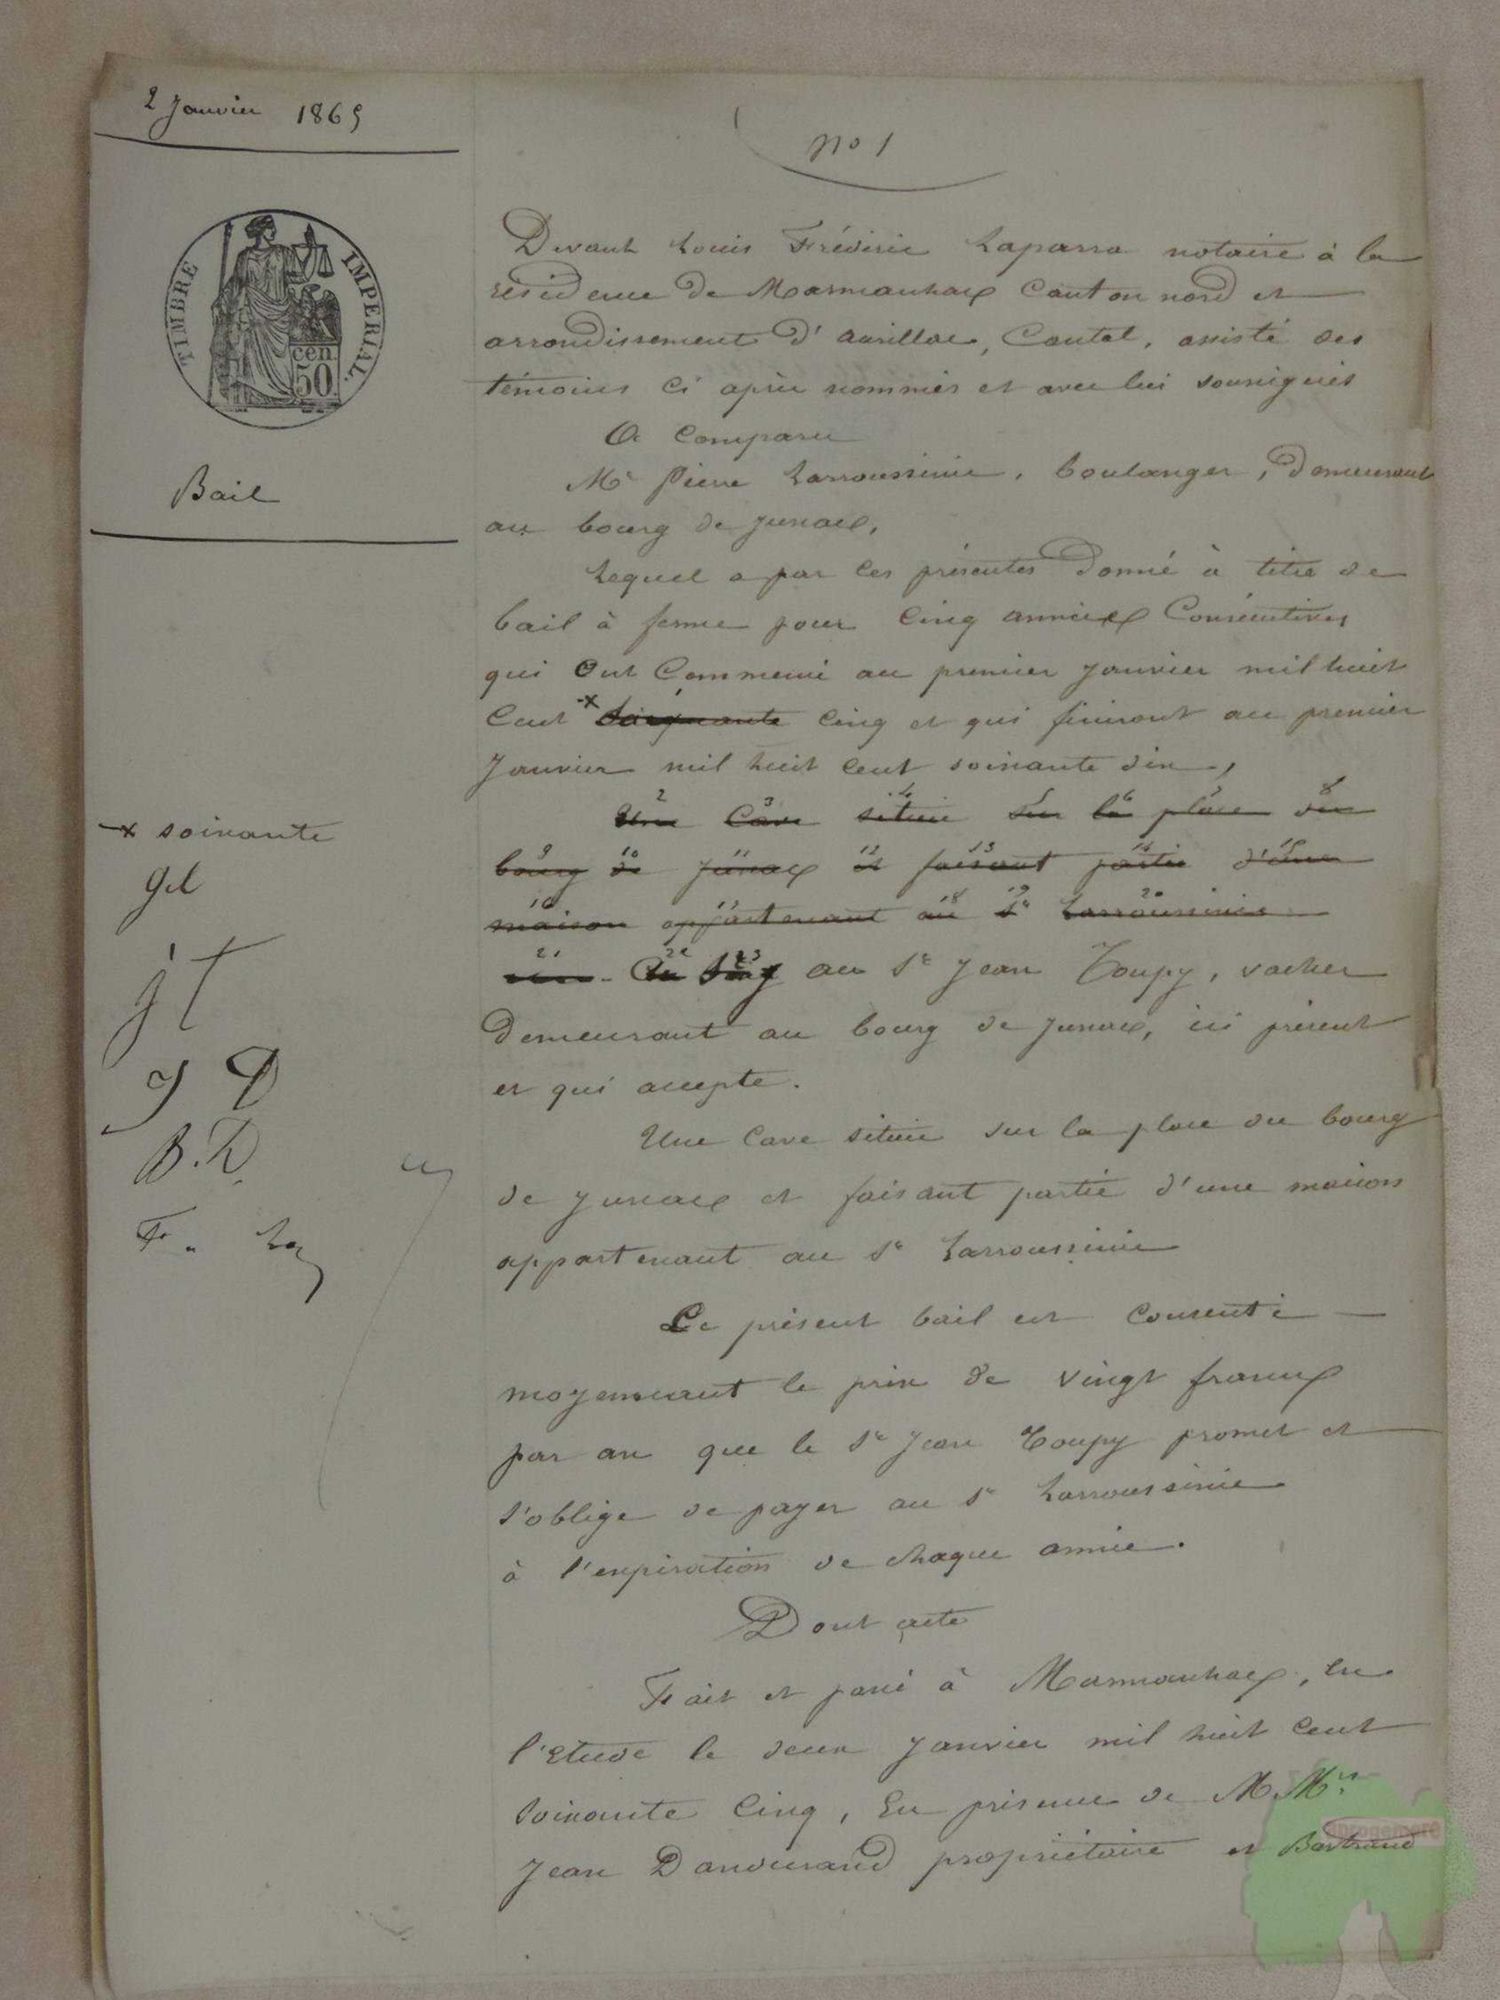 2 Janvier 1865
no 1
TIMBRE IMPERIAL.
cen.
50
Bail
Devant Louis Frédéric Laparra notaire à la
résidence de Marmanhac Canton nord et
arrondissement d'aurillac, Cantal, assisté des
témoins ci après nommés et avec lui soussignés
A Comparu
Mr Pierre Larroussinie, boulanger, demeurant
au bourg de Junac,
Lequel a par ces présentes donné à titre de
bail à ferme pour cinq années Consécutives
qui ont Commencé au premier janvier mil huit
Cent x cinq et qui finiront au premier
Janvier mil huit cent soixante dix,
2 3 4 5 6 7 8
Une Cave située sur la place du
9 10 11 12 13 14 15
bourg de Junac et faisant partie d'une
16 17 18 19 20
maison appartenant au Sr Larroussinie
21 22 23
au Sr Jean Toupy, vacher
demeurant au bourg de Junac, ici présent
et qui accepte.
Une Cave située sur la place du bourg
de Junac et faisant partie d'une maison
appartenant au Sr Larroussinie
Le présent bail est Consenti
moyennant le prix de vingt francs
par an que le Sr Jean Toupy promet et
s'oblige de payer au Sr Larroussinie
à l'expiration de chaque année.
Dont acte
Fait et passé à Marmanhac, en
l'etude le deux Janvier mil huit Cent
Soixante Cinq, En présence de M.Mrs
Jean Dandurand propriétaire et Bertrand
x soixante
J T
J D
B. D
F. La
aprogemere